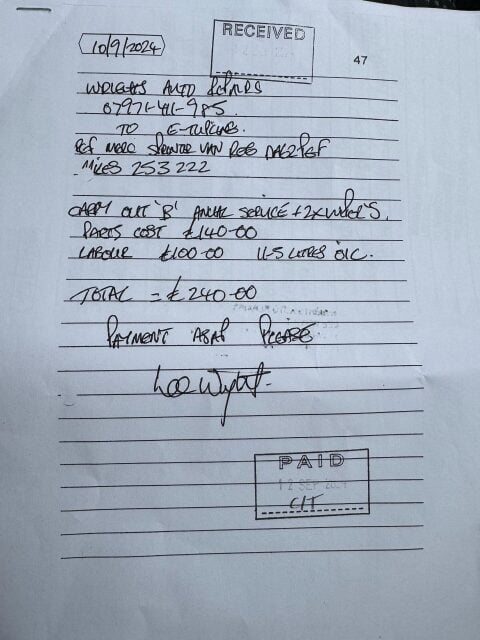 RECEIVED
10/9/2024
47
WRIGHTS AUTO REPAIRS
TO E-TURKING.
REF MERC SPRINTER VAN REG
MILES 253222
CARRY OUT 'B' ANUAL SERVICE + 2x WIPER'S.
PARTS COST £140-00
LABOUR £100-00 11-5 LITRES OIL.
TOTAL = £240-00
PAYMENT ASAP PLEASE
Lee Wright.
PAID
12 SEP 2024
C/T